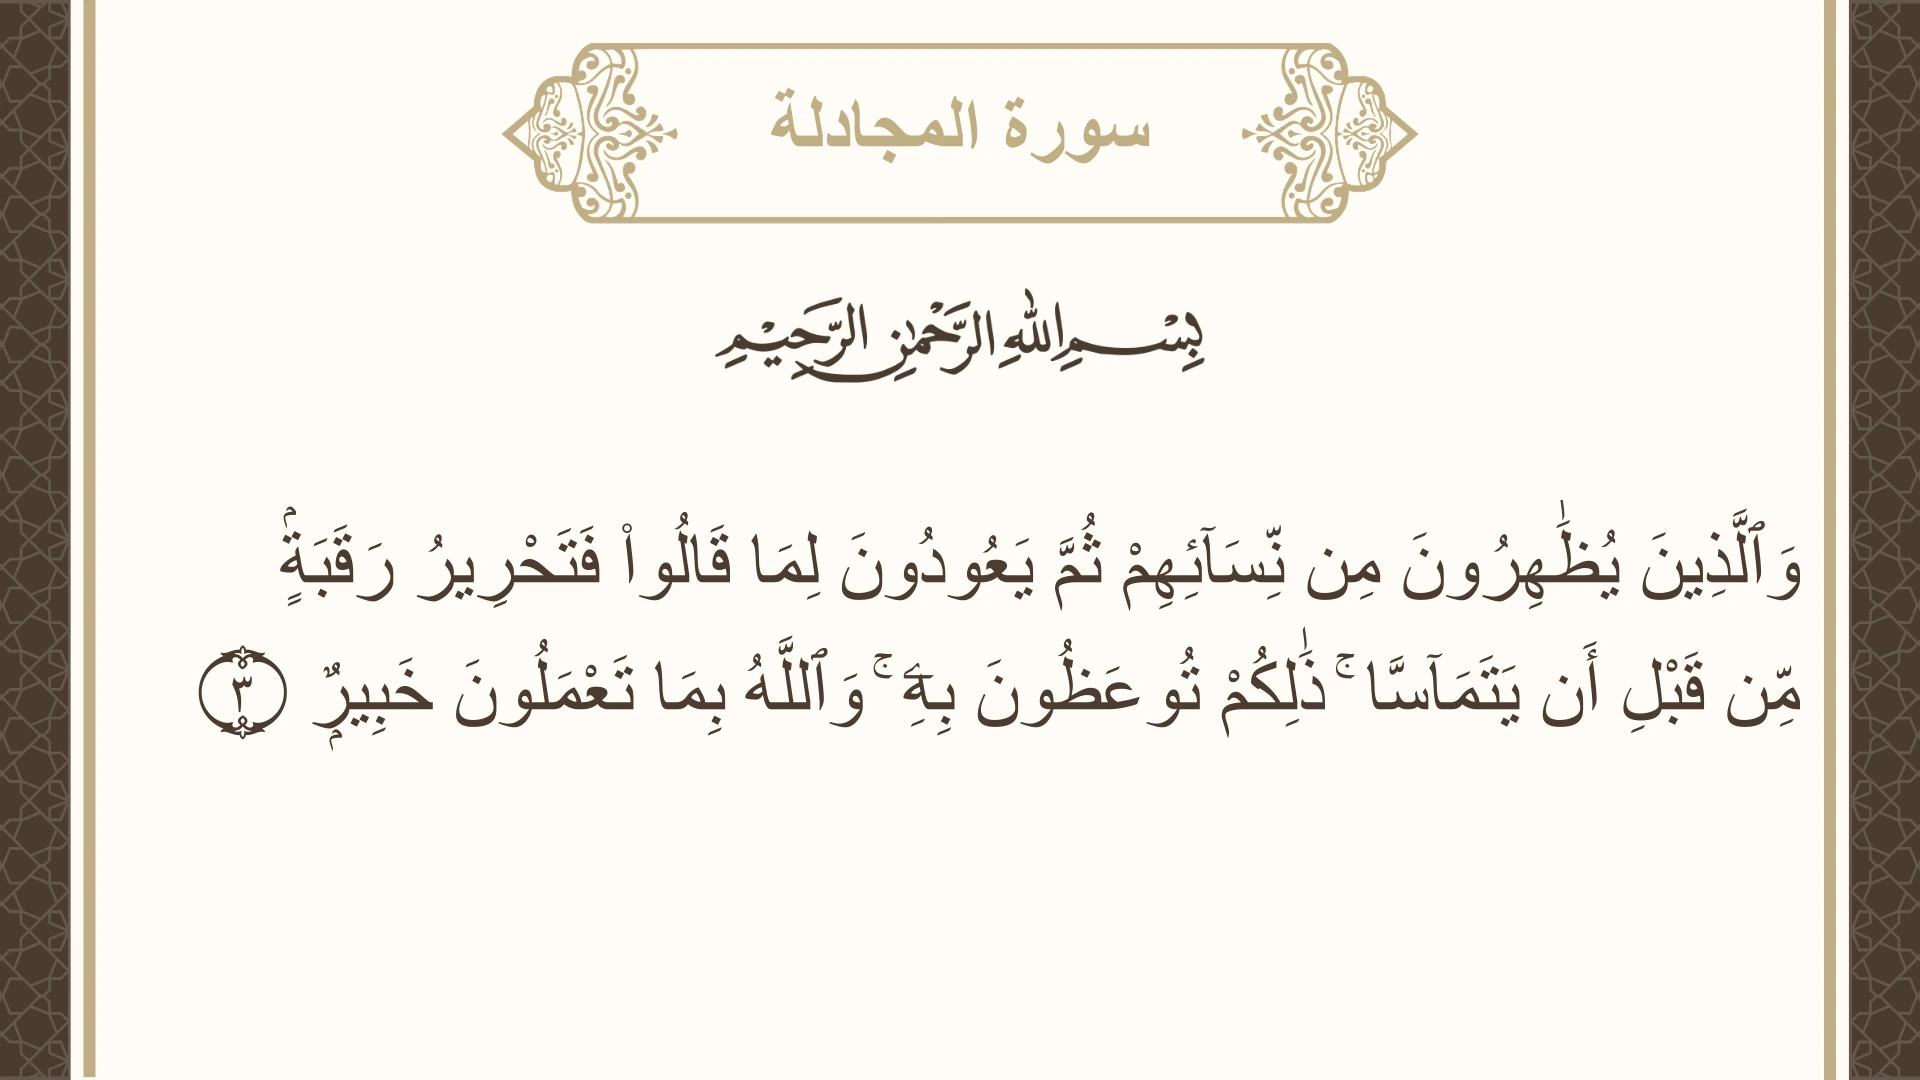 سورة المجادلة
بِسْمِ اللهِ الرَّحْمٰنِ الرَّحِيْمِ
وَٱلَّذِينَ يُظَٰهِرُونَ مِن نِّسَآئِهِمْ ثُمَّ يَعُودُونَ لِمَا قَالُوا۟ فَتَحْرِيرُ رَقَبَةٍۢ
مِّن قَبْلِ أَن يَتَمَآسَّا ۚ ذَٰلِكُمْ تُوعَظُونَ بِهِۦ ۚ وَٱللَّهُ بِمَا تَعْمَلُونَ خَبِيرٌۭ ٣